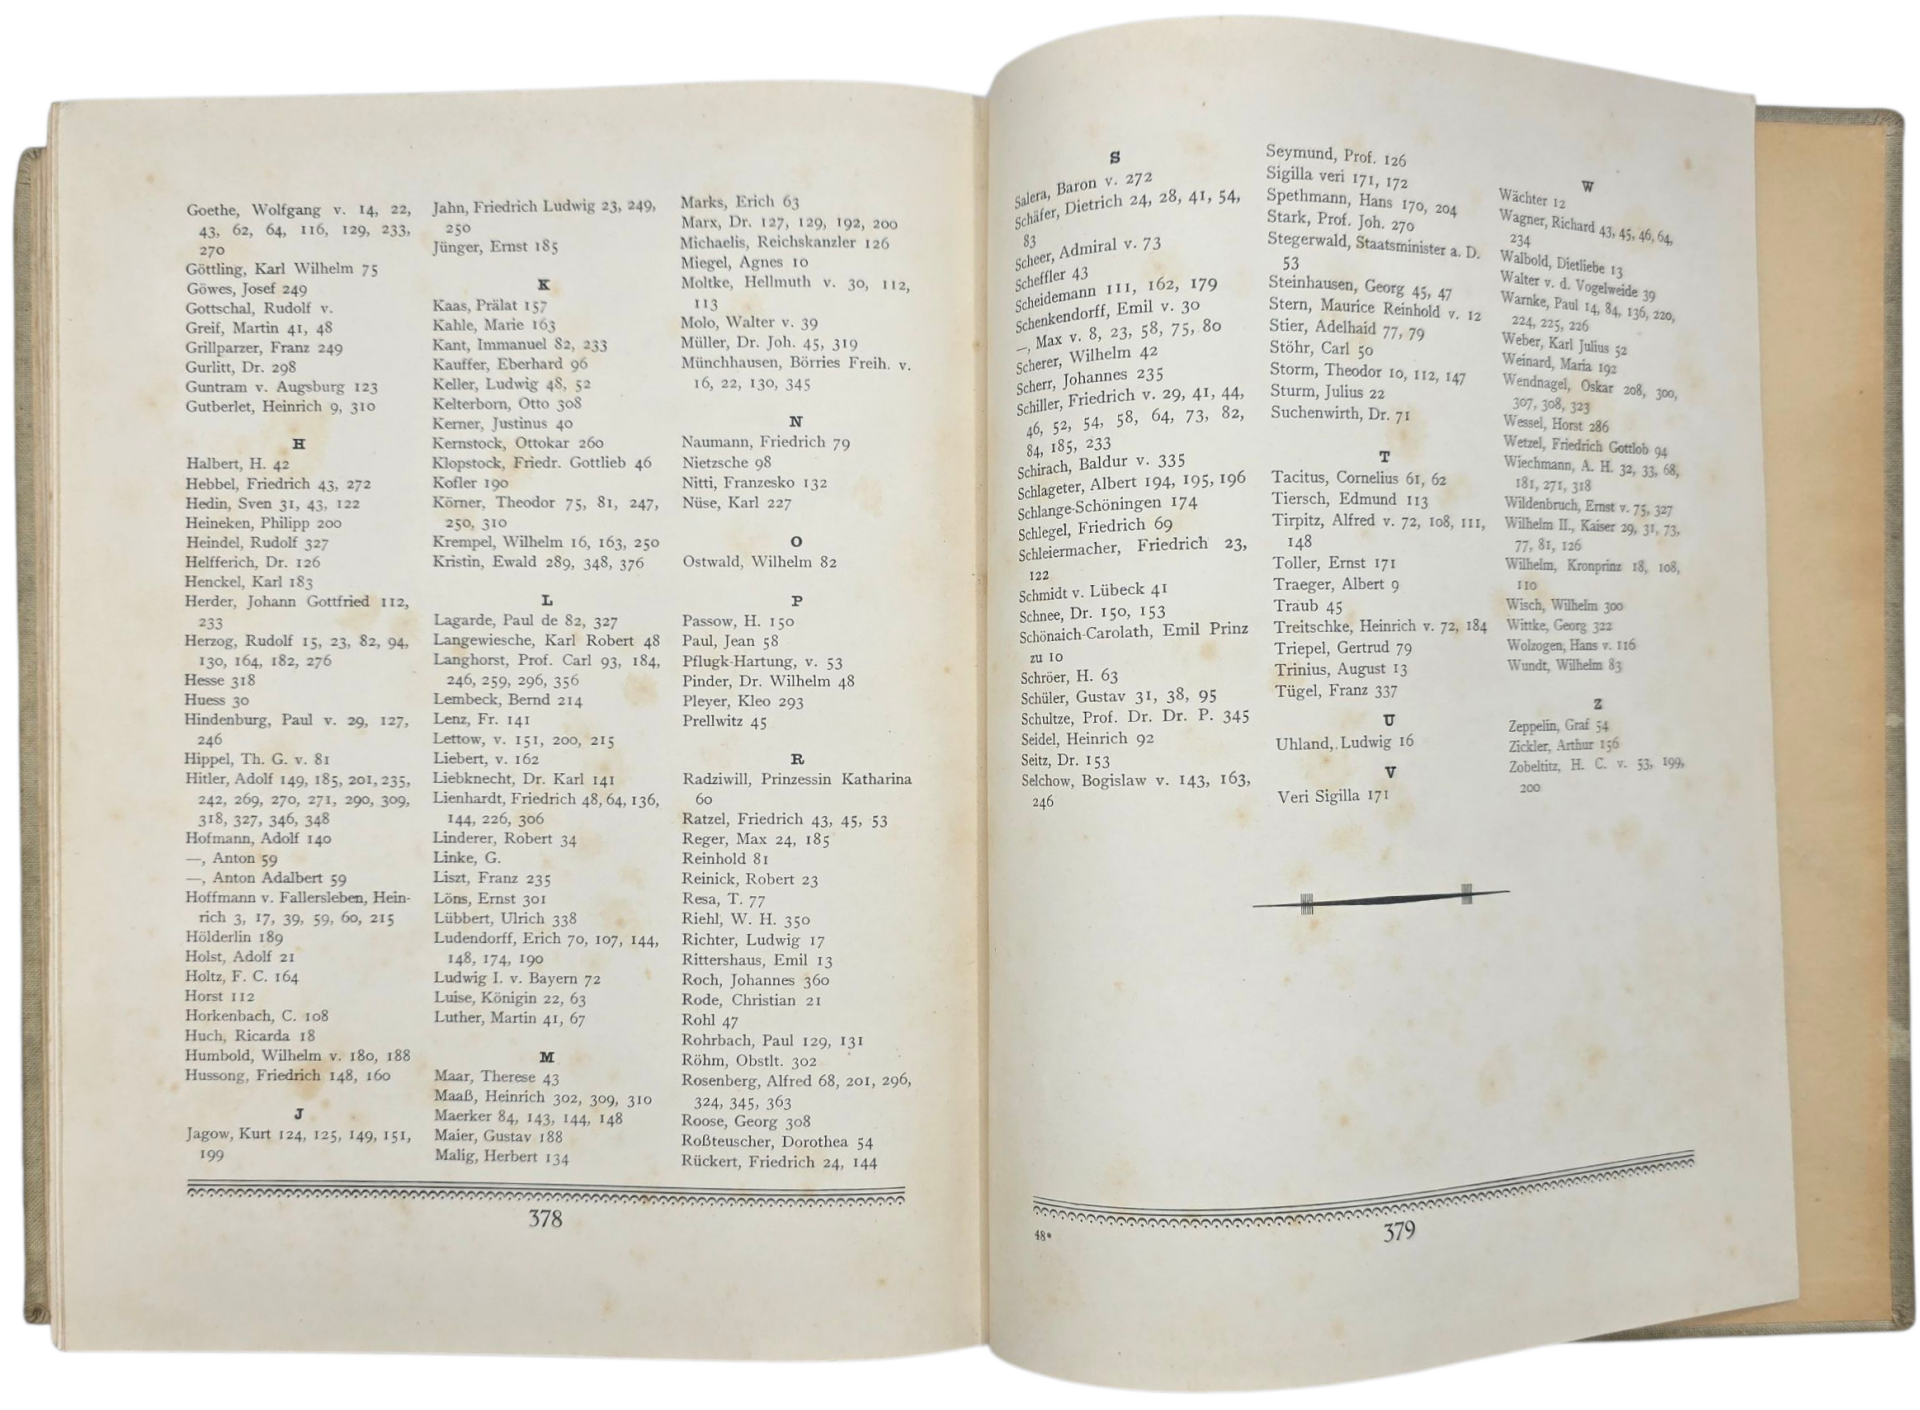 Goethe, Wolfgang v. 14, 22,
43, 62, 64, 116, 129, 233,
270
Göttling, Karl Wilhelm 75
Göwes, Josef 249
Gottschal, Rudolf v.
Greif, Martin 41, 48
Grillparzer, Franz 249
Gurlitt, Dr. 298
Guntram v. Augsburg 123
Gutberlet, Heinrich 9, 310
H
Halbert, H. 42
Hebbel, Friedrich 43, 272
Hedin, Sven 31, 43, 122
Heineken, Philipp 200
Heindel, Rudolf 327
Helfferich, Dr. 126
Henckel, Karl 183
Herder, Johann Gottfried 112,
233
Herzog, Rudolf 15, 23, 82, 94,
130, 164, 182, 276
Hesse 318
Huess 30
Hindenburg, Paul v. 29, 127,
246
Hippel, Th. G. v. 81
Hitler, Adolf 149, 185, 201, 235,
242, 269, 270, 271, 290, 309,
318, 327, 346, 348
Hofmann, Adolf 140
—, Anton 59
—, Anton Adalbert 59
Hoffmann v. Fallersleben, Hein-
rich 3, 17, 39, 59, 60, 215
Hölderlin 189
Holst, Adolf 21
Holtz, F. C. 164
Horst 112
Horkenbach, C. 108
Huch, Ricarda 18
Humbold, Wilhelm v. 180, 188
Hussong, Friedrich 148, 160
J
Jagow, Kurt 124, 125, 149, 151,
199
Jahn, Friedrich Ludwig 23, 249,
250
Jünger, Ernst 185
K
Kaas, Prälat 157
Kahle, Marie 163
Kant, Immanuel 82, 233
Kauffer, Eberhard 96
Keller, Ludwig 48, 52
Kelterborn, Otto 308
Kerner, Justinus 40
Kernstock, Ottokar 260
Klopstock, Friedr. Gottlieb 46
Kofler 190
Körner, Theodor 75, 81, 247,
250, 310
Krempel, Wilhelm 16, 163, 250
Kristin, Ewald 289, 348, 376
L
Lagarde, Paul de 82, 327
Langewiesche, Karl Robert 48
Langhorst, Prof. Carl 93, 184,
246, 259, 296, 356
Lembeck, Bernd 214
Lenz, Fr. 141
Lettow, v. 151, 200, 215
Liebert, v. 162
Liebknecht, Dr. Karl 141
Lienhardt, Friedrich 48, 64, 136,
144, 226, 306
Linderer, Robert 34
Linke, G.
Liszt, Franz 235
Löns, Ernst 301
Lübbert, Ulrich 338
Ludendorff, Erich 70, 107, 144,
148, 174, 190
Ludwig I. v. Bayern 72
Luise, Königin 22, 63
Luther, Martin 41, 67
M
Maar, Therese 43
Maaß, Heinrich 302, 309, 310
Maerker 84, 143, 144, 148
Maier, Gustav 188
Malig, Herbert 134
Marks, Erich 63
Marx, Dr. 127, 129, 192, 200
Michaelis, Reichskanzler 126
Miegel, Agnes 10
Moltke, Hellmuth v. 30, 112,
113
Molo, Walter v. 39
Müller, Dr. Joh. 45, 319
Münchhausen, Börries Freih. v.
16, 22, 130, 345
N
Naumann, Friedrich 79
Nietzsche 98
Nitti, Franzesko 132
Nüse, Karl 227
O
Ostwald, Wilhelm 82
P
Passow, H. 150
Paul, Jean 58
Pflugk-Hartung, v. 53
Pinder, Dr. Wilhelm 48
Pleyer, Kleo 293
Prellwitz 45
R
Radziwill, Prinzessin Katharina
60
Ratzel, Friedrich 43, 45, 53
Reger, Max 24, 185
Reinhold 81
Reinick, Robert 23
Resa, T. 77
Riehl, W. H. 350
Richter, Ludwig 17
Rittershaus, Emil 13
Roch, Johannes 360
Rode, Christian 21
Rohl 47
Rohrbach, Paul 129, 131
Röhm, Obstlt. 302
Rosenberg, Alfred 68, 201, 296,
324, 345, 363
Roose, Georg 308
Roßteuscher, Dorothea 54
Rückert, Friedrich 24, 144
378
S
Salera, Baron v. 272
Schäfer, Dietrich 24, 28, 41, 54,
83
Scheer, Admiral v. 73
Scheffler 43
Scheidemann 111, 162, 179
Schenkendorff, Emil v. 30
—, Max v. 8, 23, 58, 75, 80
Scherer, Wilhelm 42
Scherr, Johannes 235
Schiller, Friedrich v. 29, 41, 44,
46, 52, 54, 58, 64, 73, 82,
84, 185, 233
Schirach, Baldur v. 335
Schlageter, Albert 194, 195, 196
Schlange-Schöningen 174
Schlegel, Friedrich 69
Schleiermacher, Friedrich 23,
122
Schmidt v. Lübeck 41
Schnee, Dr. 150, 153
Schönaich-Carolath, Emil Prinz
zu 10
Schröer, H. 63
Schüler, Gustav 31, 38, 95
Schultze, Prof. Dr. Dr. P. 345
Seidel, Heinrich 92
Seitz, Dr. 153
Selchow, Bogislaw v. 143, 163,
246
Seymund, Prof. 126
Sigilla veri 171, 172
Spethmann, Hans 170, 204
Stark, Prof. Joh. 270
Stegerwald, Staatsminister a. D.
53
Steinhausen, Georg 45, 47
Stern, Maurice Reinhold v. 12
Stier, Adelhaid 77, 79
Stöhr, Carl 50
Storm, Theodor 10, 112, 147
Sturm, Julius 22
Suchenwirth, Dr. 71
T
Tacitus, Cornelius 61, 62
Tiersch, Edmund 113
Tirpitz, Alfred v. 72, 108, 111,
148
Toller, Ernst 171
Traeger, Albert 9
Traub 45
Treitschke, Heinrich v. 72, 184
Triepel, Gertrud 79
Trinius, August 13
Tügel, Franz 337
U
Uhland, Ludwig 16
V
Veri Sigilla 171
W
Wächter 12
Wagner, Richard 43, 45, 46, 64,
234
Walbold, Dietliebe 13
Walter v. d. Vogelweide 39
Warnke, Paul 14, 84, 136, 220,
224, 225, 226
Weber, Karl Julius 52
Weinard, Maria 192
Wendnagel, Oskar 208, 300,
307, 308, 323
Wessel, Horst 286
Wetzel, Friedrich Gottlob 94
Wiechmann, A. H. 32, 33, 68,
181, 271, 318
Wildenbruch, Ernst v. 75, 327
Wilhelm II., Kaiser 29, 31, 73,
77, 81, 126
Wilhelm, Kronprinz 18, 108,
110
Wisch, Wilhelm 300
Wittke, Georg 322
Wolzogen, Hans v. 116
Wundt, Wilhelm 83
Z
Zeppelin, Graf 54
Zickler, Arthur 156
Zobeltitz, H. C. v. 53, 199,
200
48*
379